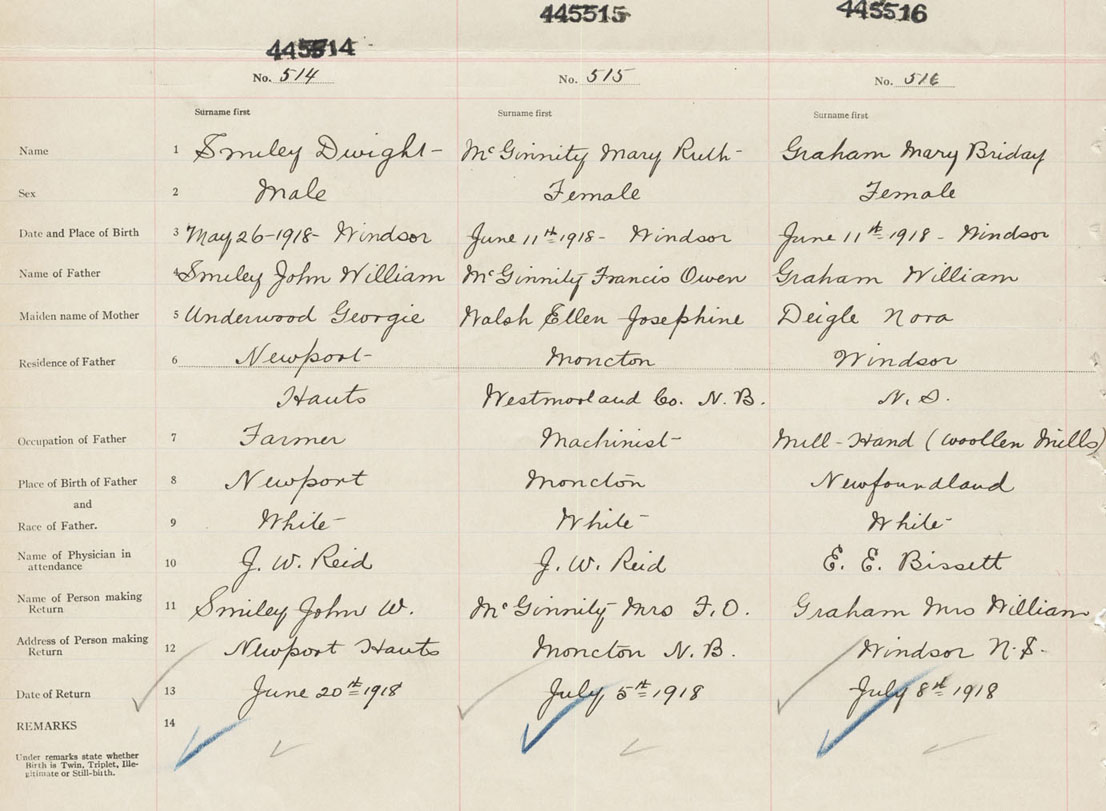 445514 445515 445516
No. 514 No. 515 No. 516
Surname first Surname first Surname first
Name 1 Smiley Dwight- McGinnity Mary Ruth- Graham Mary Briday
Sex 2 Male Female Female
Date and Place of Birth 3 May 26-1918- Windsor June 11th 1918- Windsor June 11th 1918- Windsor
Name of Father 4 Smiley John William McGinnity Francis Owen Graham William
Maiden name of Mother 5 Underwood Georgie Walsh Ellen Josephine Deigle Nora
Residence of Father 6 Newport- Moncton Windsor
Hants Westmorland Co. N.B. N.S.
Occupation of Father 7 Farmer Machinist- Mill-Hand (woollen Mills)
Place of Birth of Father 8 Newport Moncton Newfoundland
and
Race of Father. 9 White- White- White-
Name of Physician in
attendance 10 J. W. Reid J. W. Reid E. E. Bissett
Name of Person making
Return 11 Smiley John W. McGinnity Mrs F.O. Graham Mrs William
Address of Person making
Return 12 Newport Hants Moncton N.B. Windsor N.S.
Date of Return 13 June 20th 1918 July 5th 1918 July 8th 1918
REMARKS 14
Under remarks state whether
Birth is Twin, Triplet, Ille-
gitimate or Still-birth.